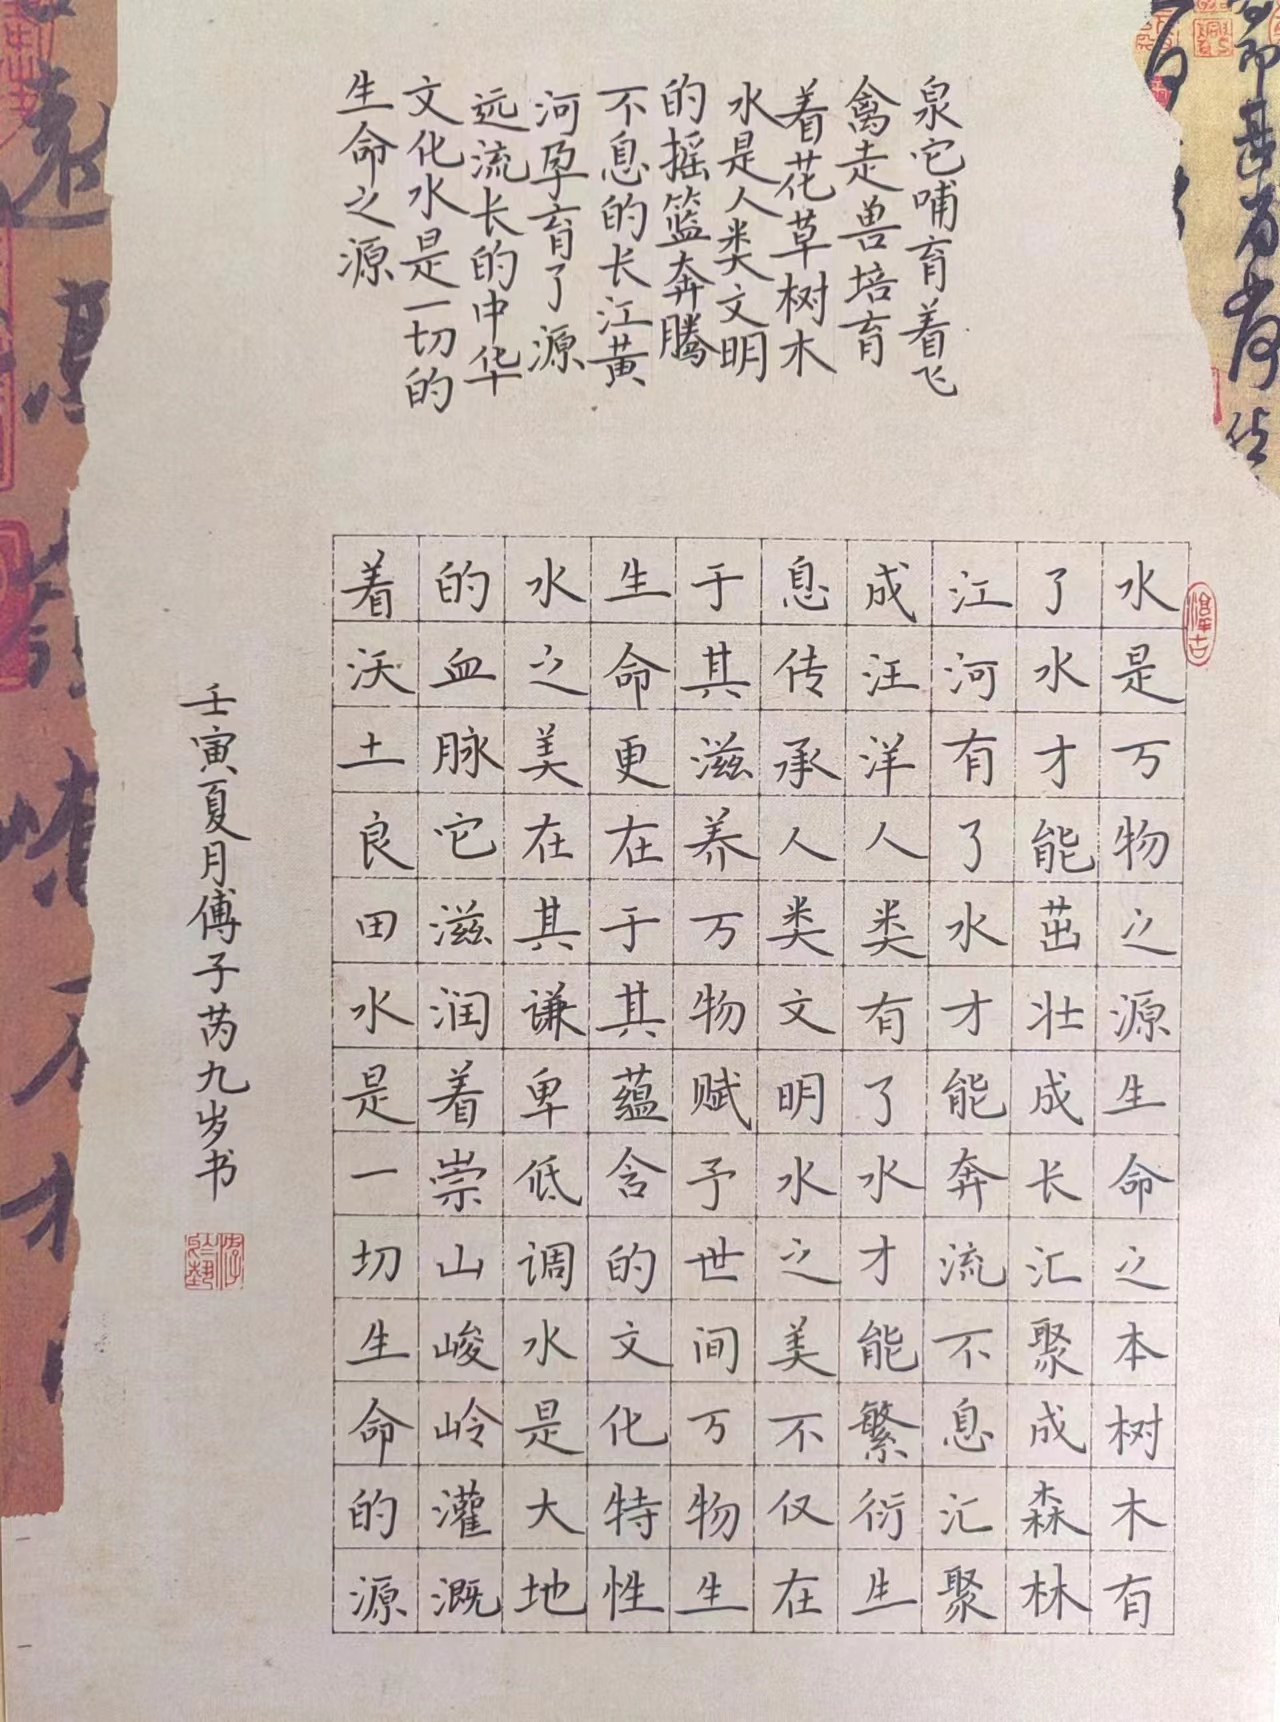 水是万物之源生命之本树木有
了水才能茁壮成长汇聚成森林
江河有了水才能奔流不息汇聚
成汪洋人类有了水才能繁衍生
息传承人类文明水之美不仅在
于其滋养万物赋予世间万物生
生命更在于其蕴含的文化特性
水之美在其谦卑低调水是大地
的血脉它滋润着崇山峻岭灌溉
着沃土良田水是一切生命的源
泉它哺育着飞
禽走兽培育
着花草树木
水是人类文明
的摇篮奔腾
不息的长江黄
河孕育了源
远流长的中华
文化水是一切的
生命之源
壬寅夏月傅子芮九岁书